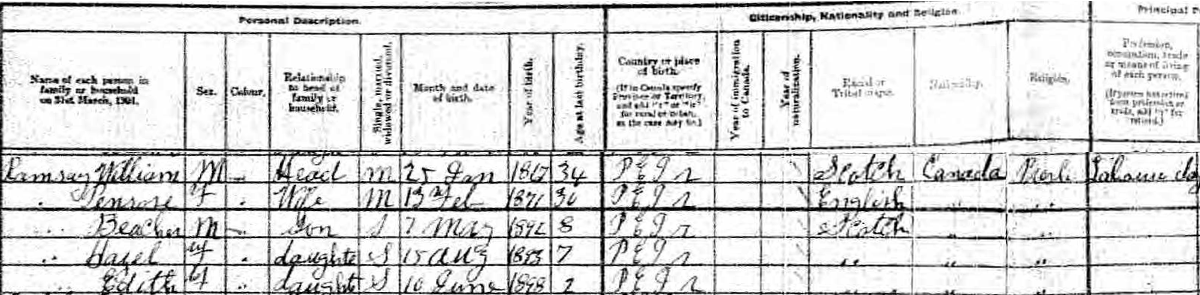 Personal Description. Citizenship, Nationality and Religion. Principal
Name of each person in family or household on 31st March, 1901. Sex. Colour. Relationship to head of family or household. Single, married, widowed or divorced. Month and date of birth. Year of birth. Age at last birthday. Country or place of birth. (If in Canada specify Province or Territory, and add "r" or "u" for rural or urban, as the case may be.) Year of immigration to Canada. Year of naturalization. Racial or Tribal origin. Nationality. Religion. Profession, occupation, trade or means of living of each person.
Ramsay William M Head M 25 Jan 1867 34 P E I r Scotch Canada
" F Wife M 13 Feb 1871 30 P E I r English " "
" Beacher M " Son S 7 May 1892 8 P E I r Scotch " "
" Hazel f " daughter S 15 Aug 1893 7 P E I r " " "
" Edith f " daughter S 10 June 1898 2 P E I r " " "